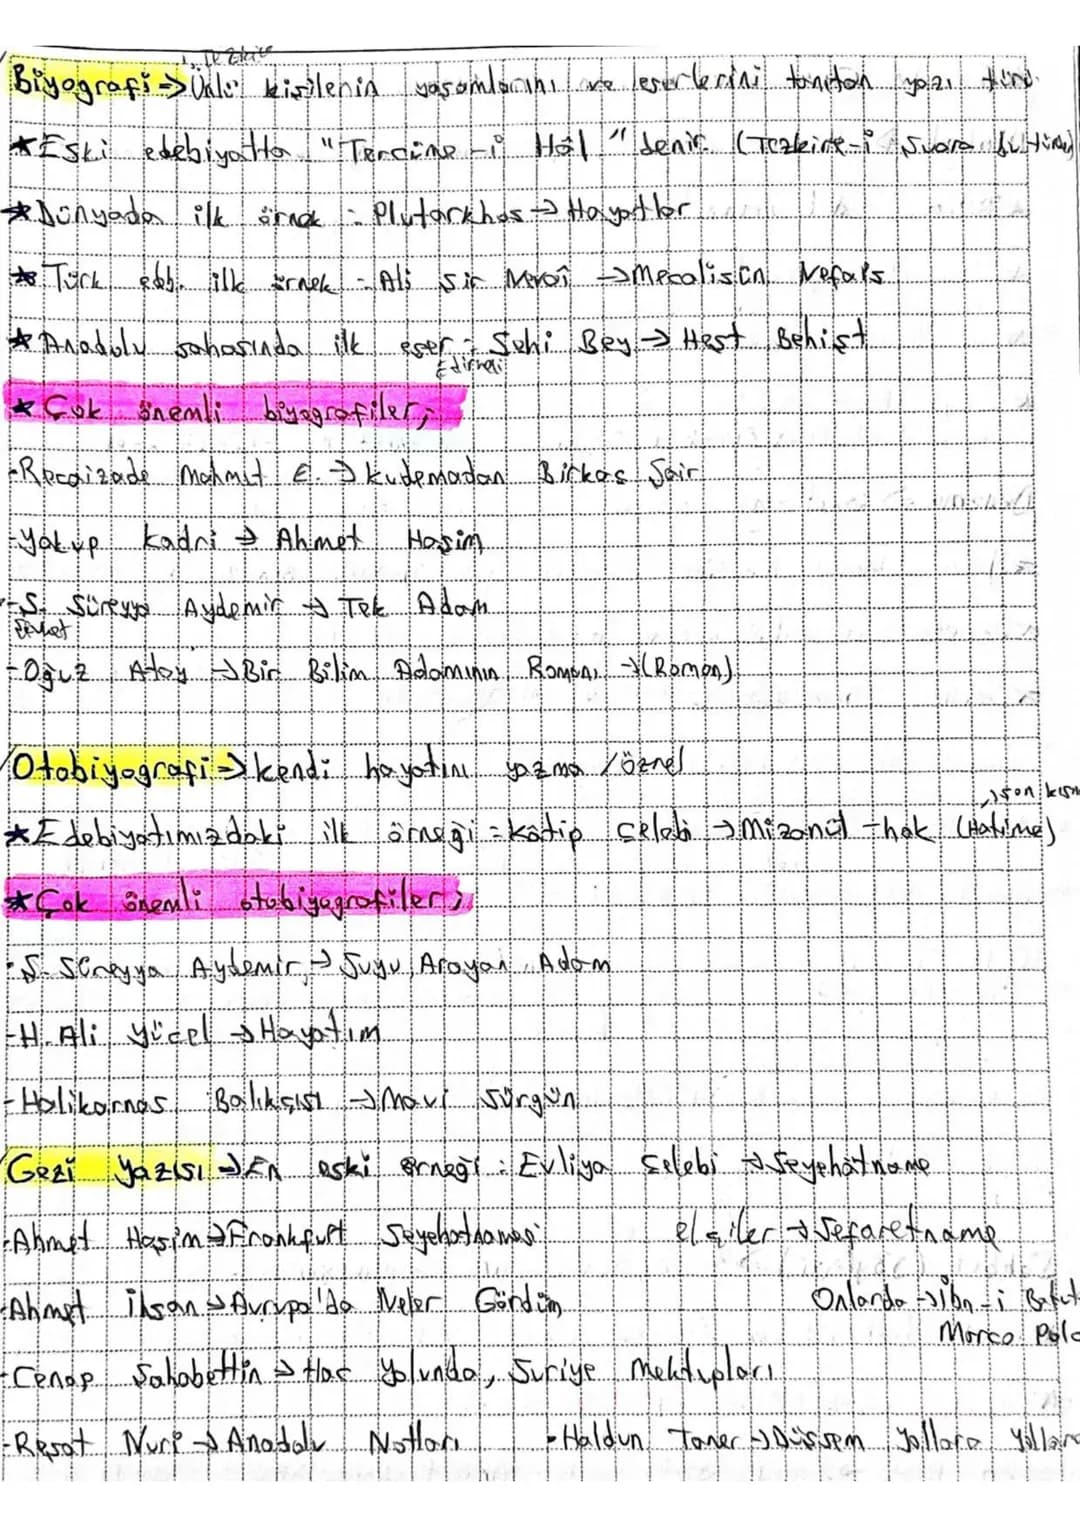 Tezkire
Biyografi → Ünlü kişilenin yaşamlarını ve eserlerini tanıtan yazı türü.
★ Eski edebiyatta "Tercüme-i Hâl" denir. (Tezkire-i Şuara
★ Dünyada ilk örnek = Plutarkhos → Hayatlar
★ Türk edb. ilk örnek = Ali Şir Nevaî → Mecalisün Nefais
★ Anadolu sahasında ilk eser = Sehi Bey → Heşt Behişt
Edirneli
★ Çok önemli biyografiler;
-Recaizade Mahmut E. → Kudemadan Birkaç Şair
-Yakup Kadri → Ahmet Haşim
-Ş. Süreyya Aydemir → Tek Adam
Şevket
-Oğuz Atay → Bir Bilim Adamının Romanı → (Roman)
Otobiyografi → kendi hayatını yazma / öznel
→ son kısım
★ Edebiyatımızdaki ilk örneği = Katip Çelebi → Mizanül-hak (Hatime)
★ Çok önemli otobiyografiler;
-Ş. Süreyya Aydemir → Suyu Arayan Adam
-H. Ali Yücel → Hayatım
-Halikarnas Balıkçısı → Mavi Sürgün
Gezi yazısı → En eski örneği : Evliya Çelebi → Seyehatname
-Ahmet Haşim → Frankfurt Seyehatnamesi elçiler → Sefaretname
-Ahmet İhsan → Avrupa'da Neler Gördüm Onlarda → İbn-i Batut
Marco Polo
-Cenap Şahabettin → Hac Yolunda, Suriye Mektupları
-Reşat Nuri → Anadolu Notları - Haldun Taner → Düşsem Yollara Yollara